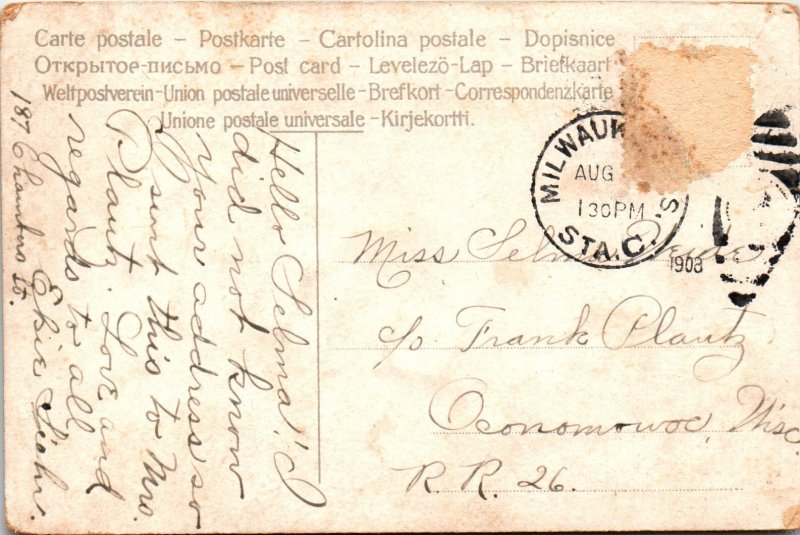 Carte postale – Postkarte – Cartolina postale – Dopisnice
Открытое-письмо – Post card – Levelezö-Lap – Briefkaart
Weltpostverein-Union postale universelle-Brefkort-Correspondenzkarte
Unione postale universale-Kirjekortti.
MILWAUK
AUG
130PM
STA. C.
1908
Miss Selma
c/o Frank Plautz
Oconomowoc, Wisc.
R. R. 26.
Hello Selma! I
did not know
your address so
I sent this to Mrs.
Plautz. Love and
regards to all
Elsie
187 St.